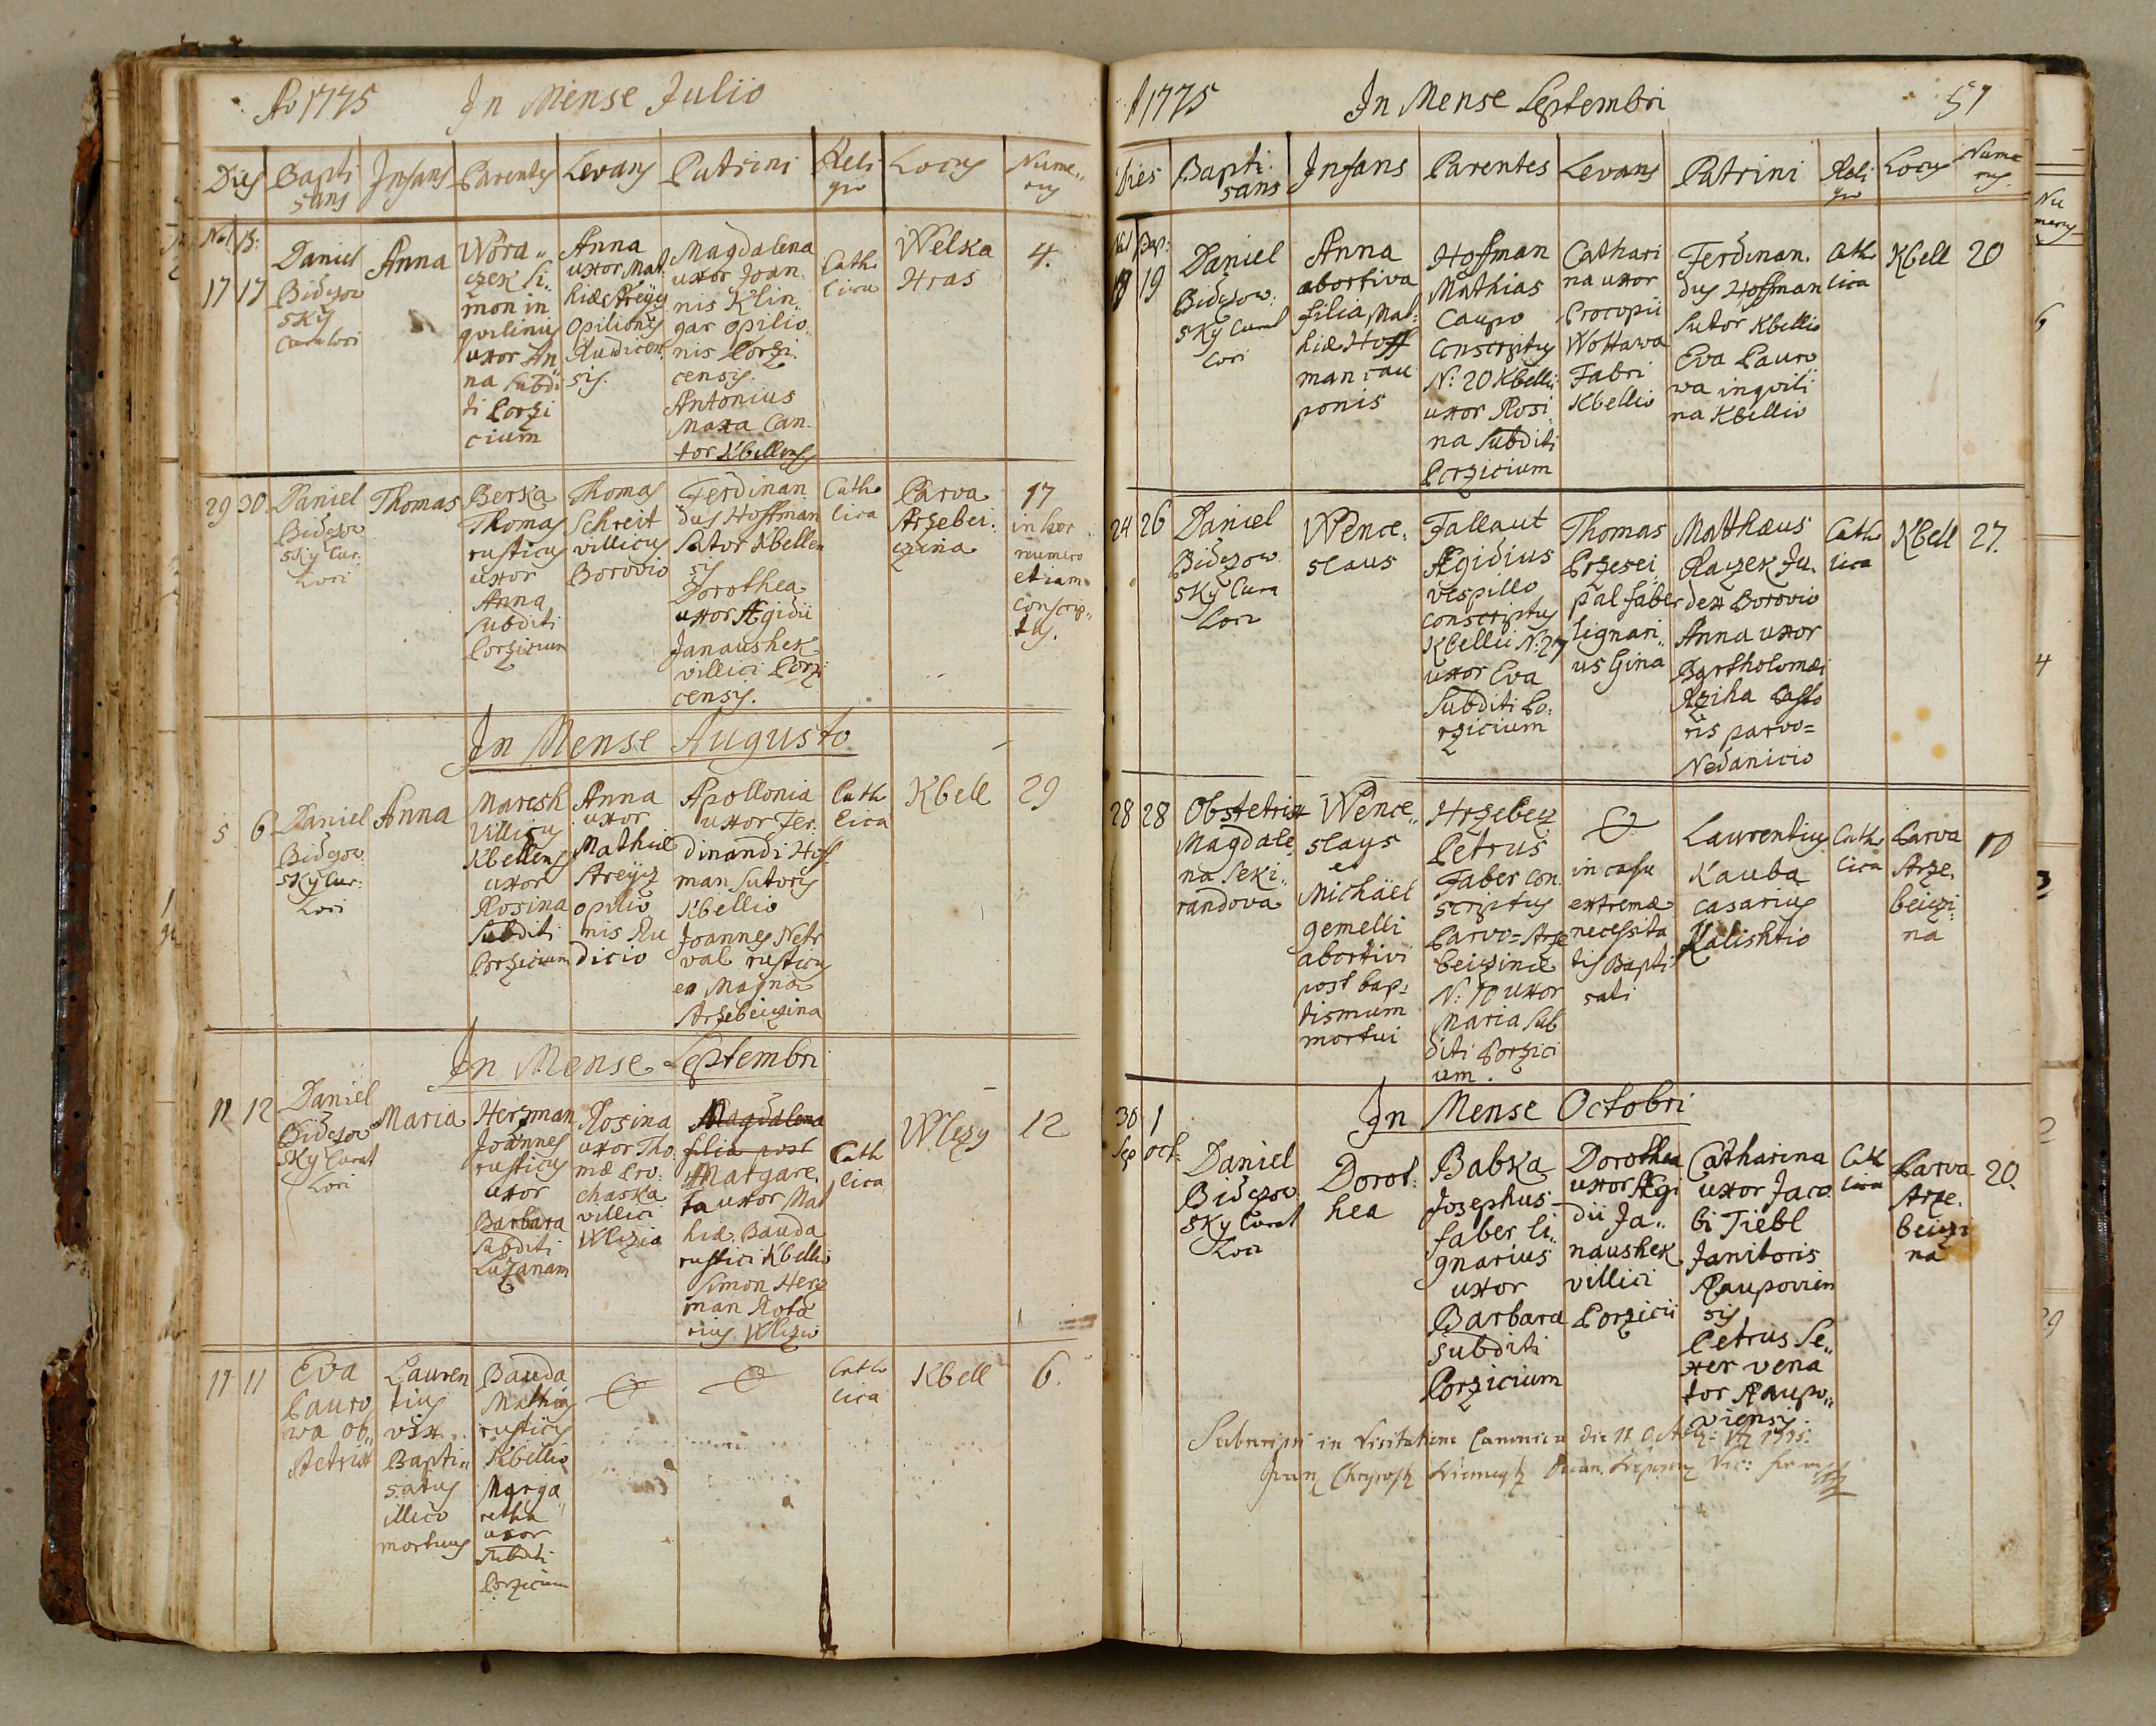 Ao 1775 In Mense Julio
Dies Bapti sans Infans Parentes Levans Patrini Reli gio Locus Nume„ rus
Nat B:
17 17
Daniel
Bidczow
sky
Cura loci
Anna
Wora„
czek Si„
mon in
qvilinus
uxor An
na Subdi
ti Porzi
cium
Anna
uxor Mat
hiæ Streycz
Opilionis
Rudicen
sis.
Magdalena
uxor Joan
nis Klin
gar opilio
nis Porzi
censis.
Antonius
Maxa Can
tor Kbellensis
Catho
lica
Welka
Hras
4.
29 30
Daniel
Bidczow
sky Cur.
Loci
Thomas
Berka
Thomas
rusticus
uxor
Anna
Subditi
Porzicium
Thomas
Schreit
villicus
Borovio
Ferdinan
dus Hoffman
Sutor Kbellen
sis
Dorothea
uxor Ægidii
Janaushek
villici Porzi
censis.
Catho
lica
Parva
Strzebei.
czina
17
in hoc
numero
etiam
conscrip„
tus.
In Mense Augusto
5 6
Daniel
Bidczow
sky Cur:
Loci
Anna
Maresh
Villicus
Kbellens
uxor
Rosina
Subditi
Porzicium
Anna
uxor
Mathiæ
Streycz
opilio
nis Ru
dicio
Apollonia
uxor Fer.
dinandi Hoff
man Sutoris
Kbellio
Joannes Netr
val rusticus
ex Magna
Strzebeiczina
Catho
lica
Kbell
29
In Mense Septembri
11 12
Daniel
Bidczow
sky Curat
Loci
Maria
Herzman
Joannes
rusticus
uxor
Barbara
Subditi
Luzanam
Rosina
uxor Tho
mæ Pro:
chaska
villici
Wlczia
Magdalena
filia post
Margare.
ta uxor Mat
hiæ Bauda
rustici Kbellio
Simon Herz
man Rota
rius Wlczio
Catho
lica
Wlczy
12
11 11
Eva
Pauro
wa Ob„
stetrix
Lauren
tius
vix
Bapti„
satus
illico
mortuus
Bauda
Mathias
rusticus
Kbellio
Marga
retha
uxor
Subditi
Porzicium
Catho
lica
Kbell
6.
A 1775 In Mense Septembri 51
Dies Bapti. sans Infans Parentes Levans Patrini Reli gio Locus Nume rus.
Nat Bap:
19 19
Daniel
Bidczow:
sky Curat
Loci
Anna
abortiva
filia Mat:
hiæ Hoff
man cau
ponis
Hoffman
Mathias
Caupo
Conscriptus
N: 20 Kbelli
uxor Rosi
na Subditi
Porzicium
Cathari
na uxor
Procopii
Wottawa
Fabri
Kbellio
Ferdinan.
dus Hoffman
Sutor Kbellio
Eva Pauro
wa inqvili
na Kbellio
Catho
lica
Kbell
20
24 26
Daniel
Bidczow
sky Cura
Loci
Wence.
slaus
Fallaut
Ægidius
vespillo
conscriptus
Kbellii N: 27
uxor Eva
Subditi Po:
rzicium
Thomas
Przesei
pal faber
lignari„
us Gina
Matthæus
Raczek Ju.
dex Borovio
Anna uxor
Bartholomæi
Rziha Pasto
ris parvo=
Nedanicio
Catho
lica
Kbell
27.
28 28
Obstetrix
Magdale.
na Seki„
randova
Wence„
slaus
et
Michäel
gemelli
abortivi
post bap:
tismum
mortui
Hrzebecz
Petrus
Faber con
scriptus
Parvo=Strze
beiczinæ
N: 10 uxor
Maria Sub
diti Porzici
um.
in casu
extremæ
necessita
tis Bapti
sati
Laurentius
Kauba
casarius
Kalishtio
Catho
lica
Parva
Strze.
beiczi
na
10
In Mense Octobri
30 1
Sep oct:
Daniel
Bidczow
sky Curat
Loci
Dorot:
hea
Babka
Josephus
faber li„
gnarius
uxor
Barbara
subditi
Porzicium
Dorothea
uxor Ægi
dii Ja„
naushek
villici
Porzicii
Catharina
uxor Jaco
bi Tiebl
Janitoris
Raupovien
sis
Petrus Se„
xer vena
tor Raupo„
viensis.
Catho
lica
Parva
Strze.
beiczi
na
20.
in Visitatione Canonica die 11 1775.
Nu
merus
6
4
2
29